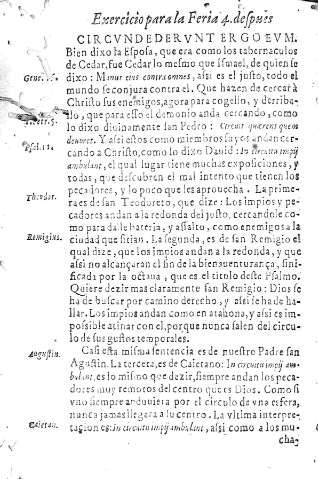 Exercicio para la Feria 4. despues
CIRCVNDEDERVNT ERGO EVM.
Bien dixo la Esposa, que era como los tabernaculos
de Cedar, fue Cedar lo mesmo que ismael, de quien se
Genes.
dixo: Manus eius contra omnes, assi es el justo, todo el
mundo se conjura contra el. Que hazen de cercar à
Christo sus enemigos, agora para cogello, y derriba-
llo, que para esso el demonio anda cercando, como
lo dixo diuinamente san Pedro: Circuit quærens quem
Psal. 11.
deuoret. Y assi estos como miembros suyos andan cer-
cando à Christo, como lo dixo Dauid: In circuitu impij
ambulant, el qual lugar tiene muchas exposiciones, y
todas, que descubren el mal intento que tienen los
pecadores, y lo poco que les aprouecha. La prime-
Theodor.
ra es de san Teodoreto, que dize: Los impios y pe-
cadores andan a la redonda del justo, cercandole co-
mo para dalle bateria, y assalto, como enemigos a la
Remigius.
ciudad que sitian. La segunda, es de san Remigio el
qual dize, que los impios andan a la redonda, y que
assi no alcançaràn el fin de la bienauenturança, sini-
ficada por la octaua, que es el titulo deste Psalmo.
Quiere dezir mas claramente san Remigio: Dios se
ha de buscar por camino derecho, y assi se ha de ha-
llar. Los impios andan como en atahona, y assi es im-
possible atinar con el, porque nunca salen del circu-
lo de sus gustos temporales.
Augustin.
Casi esta misma sentencia es de nuestro Padre san
Agustin. La tercera, es de Caietano: In circuitu impij am-
bulant, es lo mismo que dezir, siempre andan los peca-
dores muy remotos del centro que es Dios. Como si
vno siempre anduuiera por el circulo de vna esfera,
nunca jamas llegara a su centro. La vltima interpre-
Caietan.
tacion es: In circuitu impij ambulant, assi como a los mu-
cha-